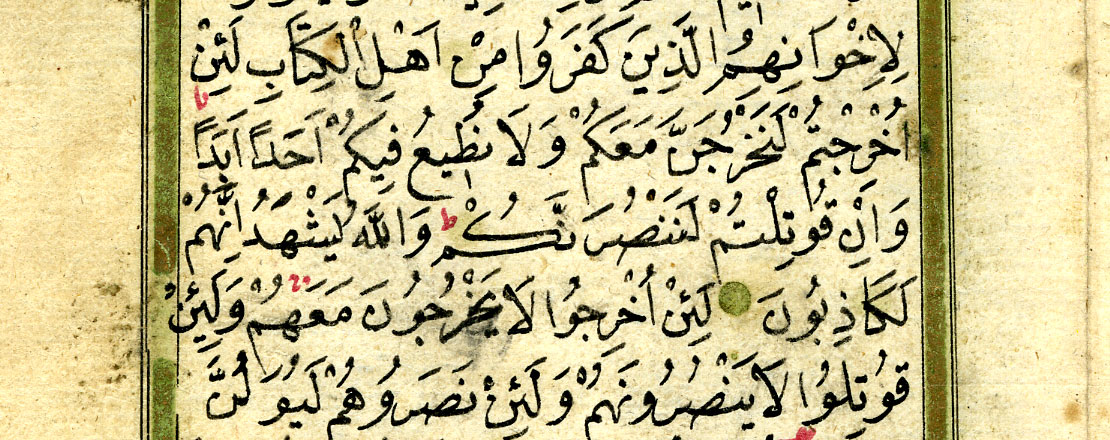 لِاِخْوَانِهِمُ الَّذِينَ كَفَرُوا مِنْ اَهْلِ الْكِتَابِ لَئِنْ
اُخْرِجْتُمْ لَنَخْرُجَنَّ مَعَكُمْ وَلَا نُطِيعُ فِيكُمْ اَحَدًا اَبَدًا
وَاِنْ قُوتِلْتُمْ لَنَنْصُرَنَّكُمْ ط وَاللّٰهُ يَشْهَدُ اِنَّهُمْ
لَكَاذِبُونَ لَئِنْ اُخْرِجُوا لَا يَخْرُجُونَ مَعَهُمْ وَلَئِنْ
قُوتِلُوا لَا يَنْصُرُونَهُمْ وَلَئِنْ نَصَرُوهُمْ لَيُوَلُّنَّ